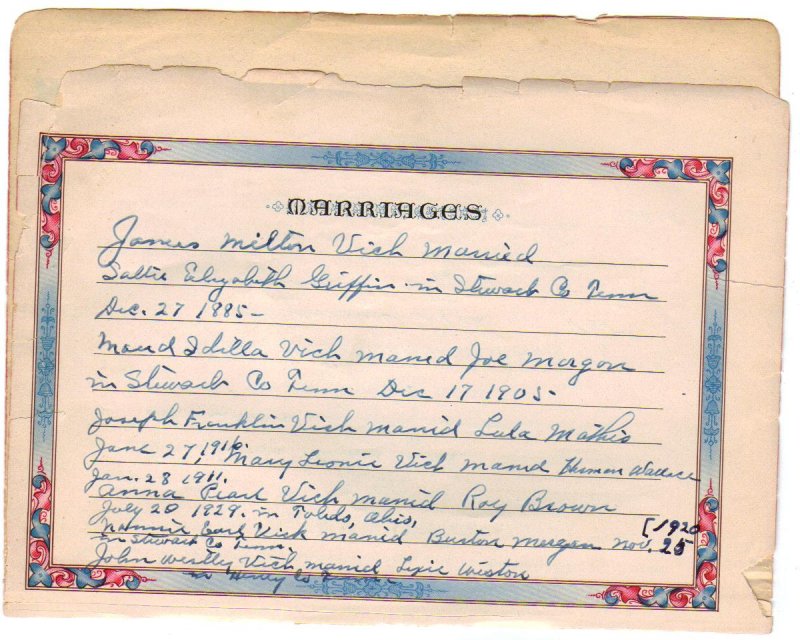 MARRIAGES
James Milton Vick married
Sallie Elizabeth Griffin in Stewart Co Tenn
Dec. 27 1885-
Maud Idilla Vick maried Joe Morgon
in Stewart Co Tenn Dec 17 1905-
Joseph Franklin Vick maried Lula Mathis
June 27, 1916. Mary Leonie Vick maried Herman Wallace
Jan. 28 1911.
Anna Pearl Vick maried Roy Brown
July 20 1929. in Toledo, Ohio, [1920
Nannie Earl Vick maried Burton Morgan Nov. 25
in Stewart Co Tenn.
John Westly Vick, maried Lexie Weston
in Henry Co